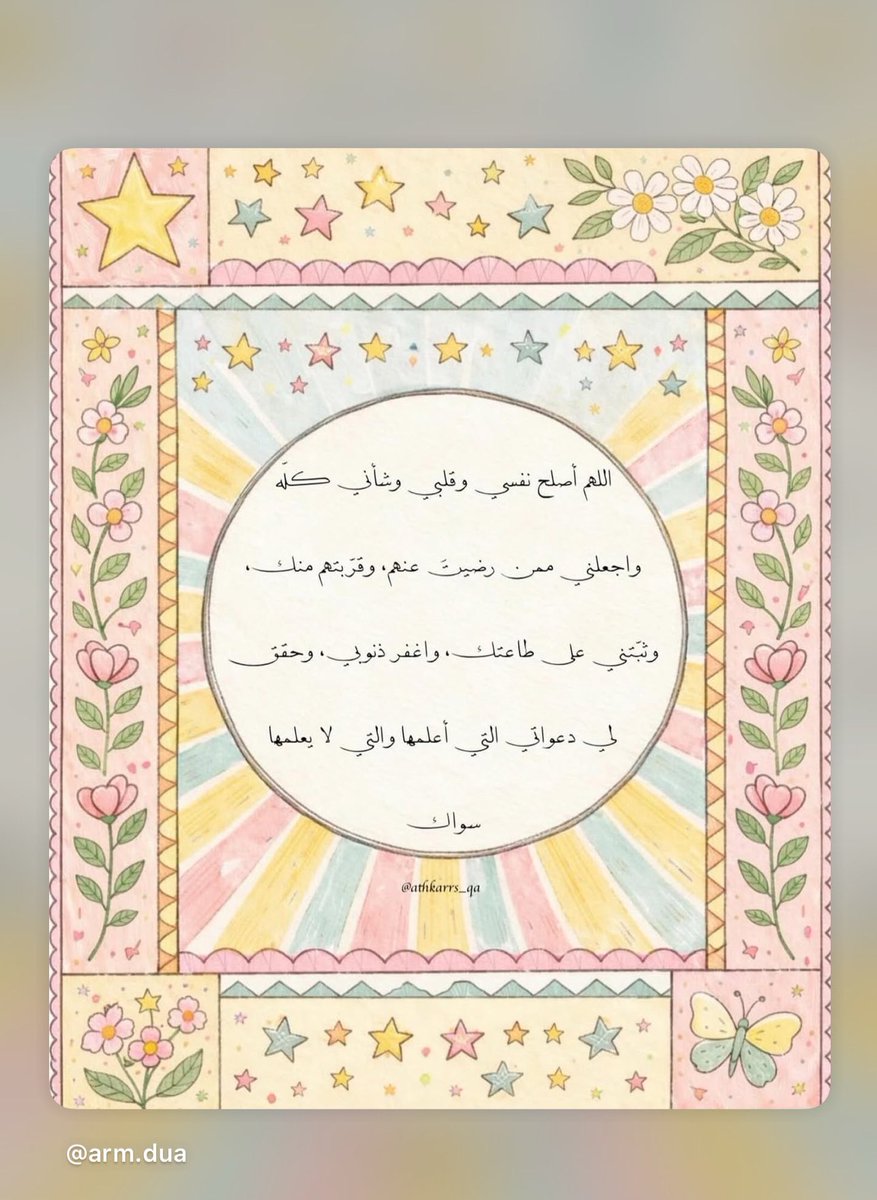 اللهم أصلح نفسي وقلبي وشأني كلّه
واجعلني ممن رضيتَ عنهم، وقرّبتهم منك،
وثبّتني على طاعتك، واغفر ذنوبي، وحقق
لي دعواتي التي أعلمها والتي لا يعلمها
سواك
@athkarrs_qa
@arm.dua